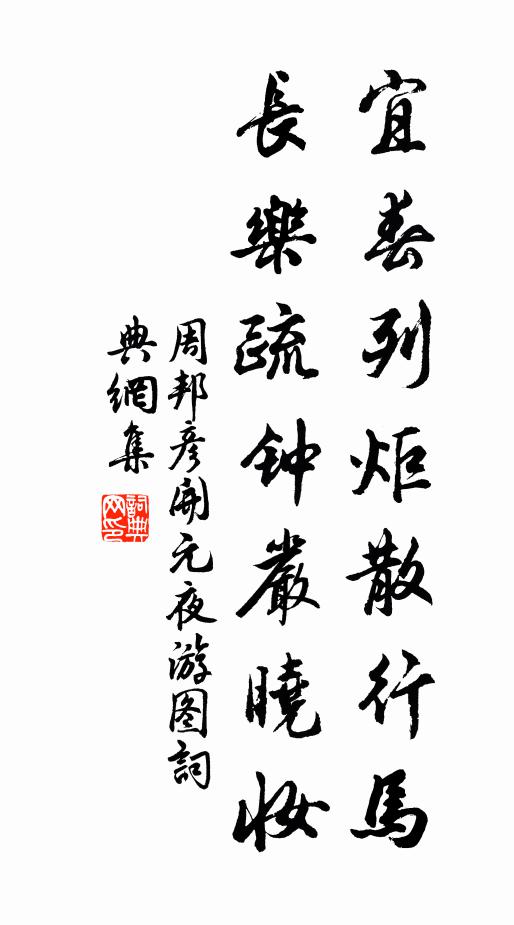 宜春列炬散行馬
長樂疏钟嚴曉妝
周邦彦開元夜游图詞
典網集
詞典网印